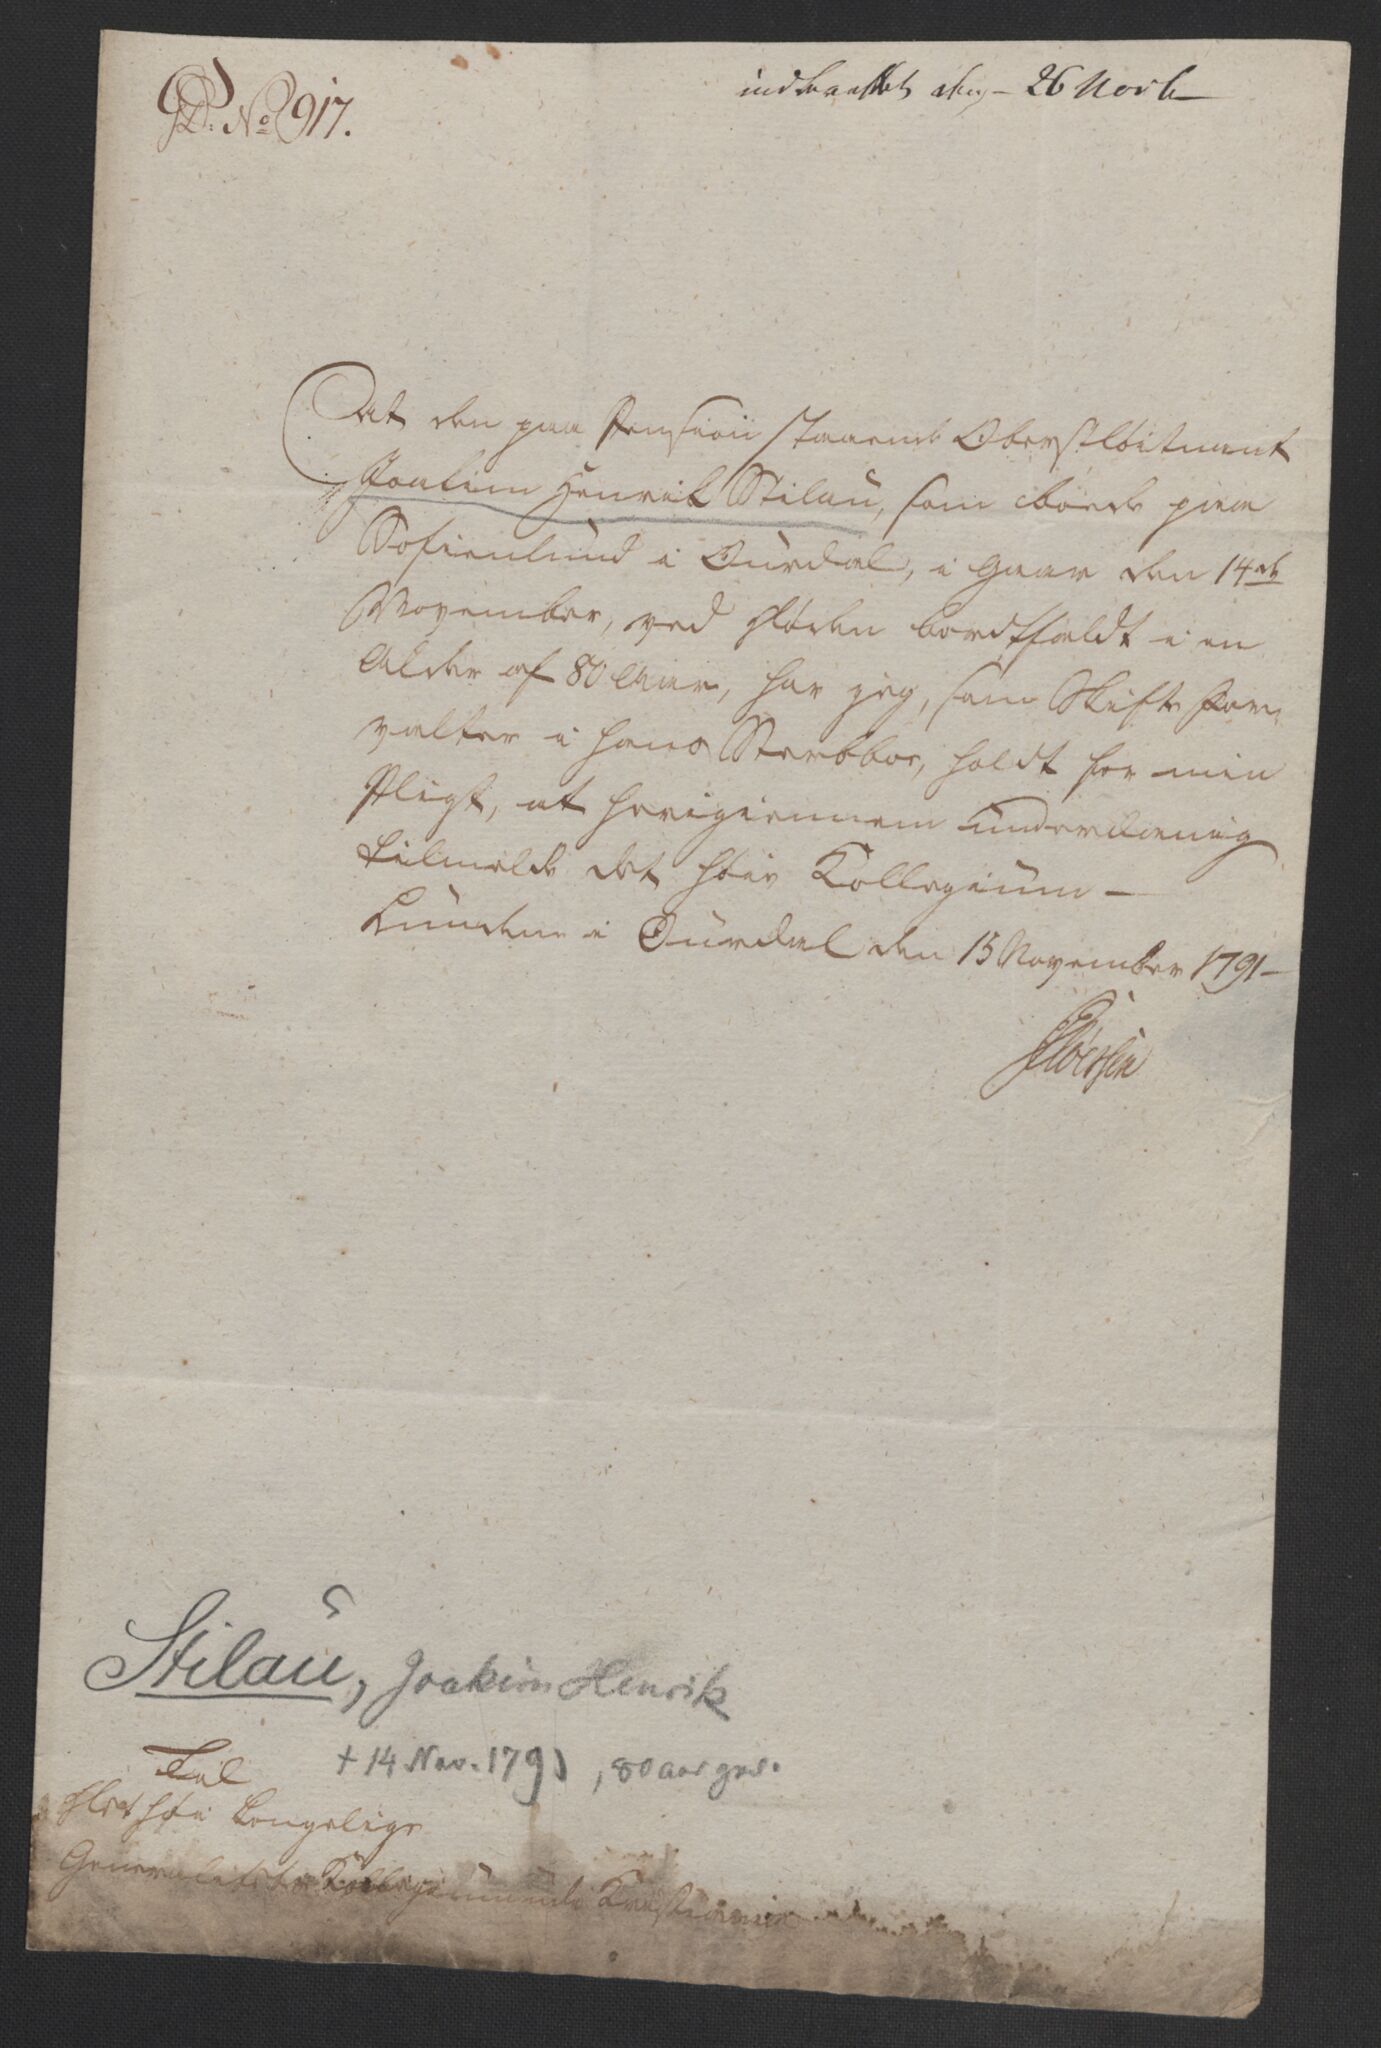 GD: No 917.
26 Novb
At den paa Pension staaende Oberstløitnant
Joakim Henrik Stilau, som boede paa
Sofienlund i Ourdal, i Gaar den 14de
November, ved Døden bortfaldt i en
Alder af 80 Aar, har jeg, som Skifte For,
valter i hans Sterbboe, holdt for min
Pligt, at herigiennem underdanig
tilmelde det høie Kollegium –
Lunden i Ourdal den 15 November 1791 –
Stilau, Joakim Henrik
+ 14 Nov. 1791, 80 aar gml.
Til
Det høi Kongelige
Generalitets Kollegium